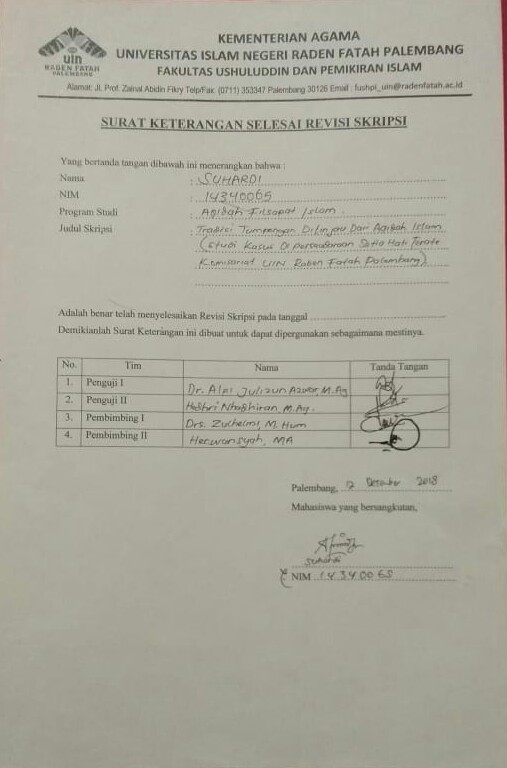 KEMENTERIAN AGAMA
UNIVERSITAS ISLAM NEGERI RADEN FATAH PALEMBANG
FAKULTAS USHULUDDIN DAN PEMIKIRAN ISLAM
uin
RADEN FATAH
PALEMBANG
Alamat: JL. Prof. Zainal Abidin Fikry Telp/Fax. (0711) 353347 Palembang 30126 Email : fushpi_uin@radenfatah.ac.id
SURAT KETERANGAN SELESAI REVISI SKRIPSI
Yang bertanda tangan dibawah ini menerangkan bahwa :
Nama : SUHARDI
NIM : 14340065
Program Studi : Aqidah Filsapat Islam
Judul Skripsi : Tradisi Tumpengan Ditinjau Dari Aqidah Islam
(Studi Kasus Di Persaudaraan Setia Hati Terate
Komisariat UIN Raden Fatah Palembang)
Adalah benar telah menyelesaikan Revisi Skripsi pada tanggal
Demikianlah Surat Keterangan ini dibuat untuk dapat dipergunakan sebagaimana mestinya.
No. Tim Nama Tanda Tangan
1. Penguji I Dr. Alpi Julizun Azwar, M.Ag
2. Penguji II M.Ag.
3. Pembimbing I Drs. Zulhelmi, M. Hum
4. Pembimbing II Herwansyah, MA
Palembang, 12 Desember 2018
Mahasiswa yang bersangkutan,
Suhardi
NIM 14340065